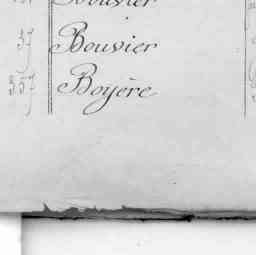 Bouvier
37 Bouvier
357 Boyère